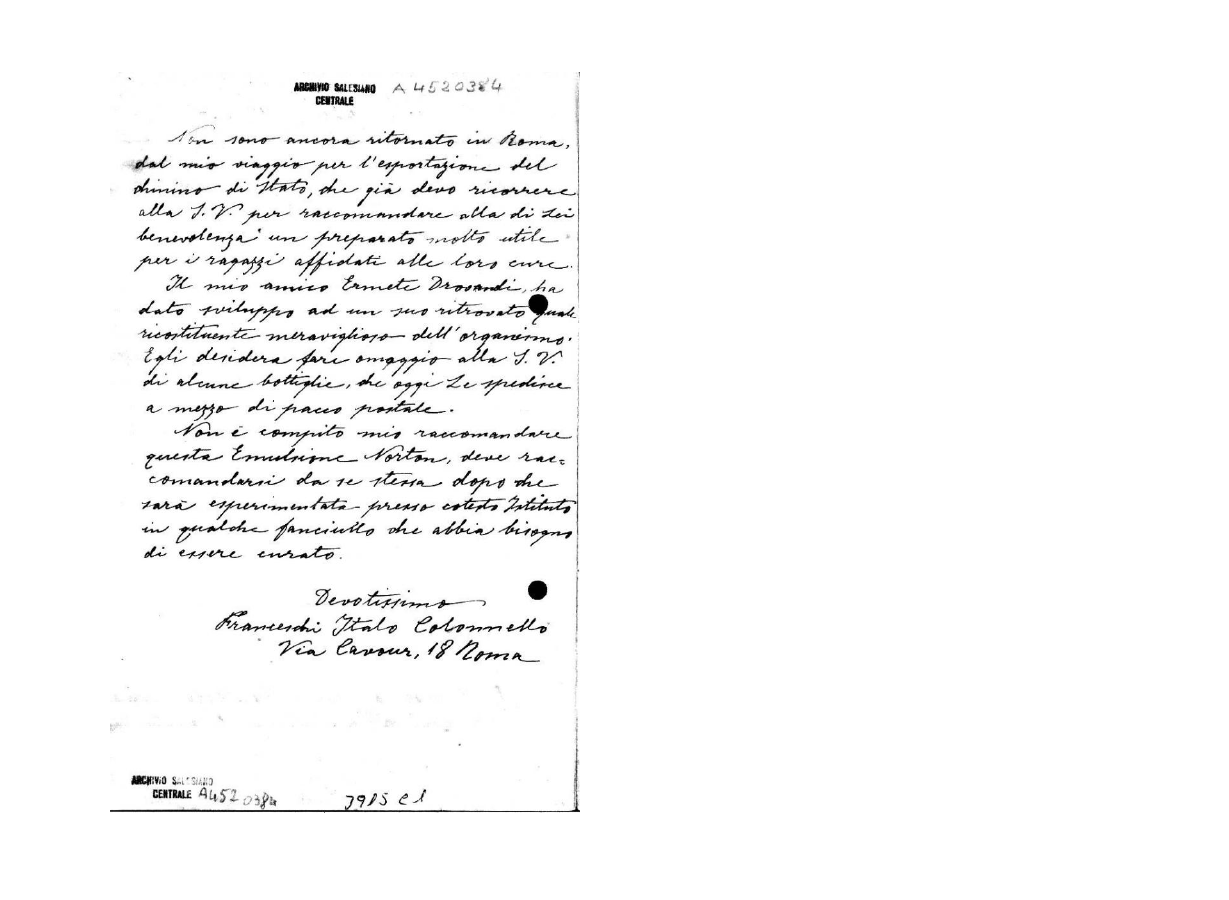 ARCHIVIO SALESIANO A4520384
CENTRALE
Non sono ancora ritornato in Roma,
dal mio viaggio per l'esportazione del
chinino di Stato, che già devo ricorrere
alla S. V. per raccomandare alla di Lei
benevolenza un preparato molto utile
per i ragazzi affidati alle loro cure.
Il mio amico Ermete ha
dato sviluppo ad un suo ritrovato quale
ricostituente meraviglioso dell'organismo.
Egli desidera fare omaggio alla S. V.
di alcune bottiglie, che oggi Le spedisce
a mezzo di pacco postale.
Non è compito mio raccomandare
questa Emulsione Norton, deve rac=
comandarsi da se stessa dopo che
sarà esperimentata presso cotesto Istituto
in qualche fanciullo che abbia bisogno
di essere curato.
Devotissimo
Franceschi Italo Colonnello
Via Cavour, 18 Roma
ARCHIVIO SALESIANO
CENTRALE A452 0384